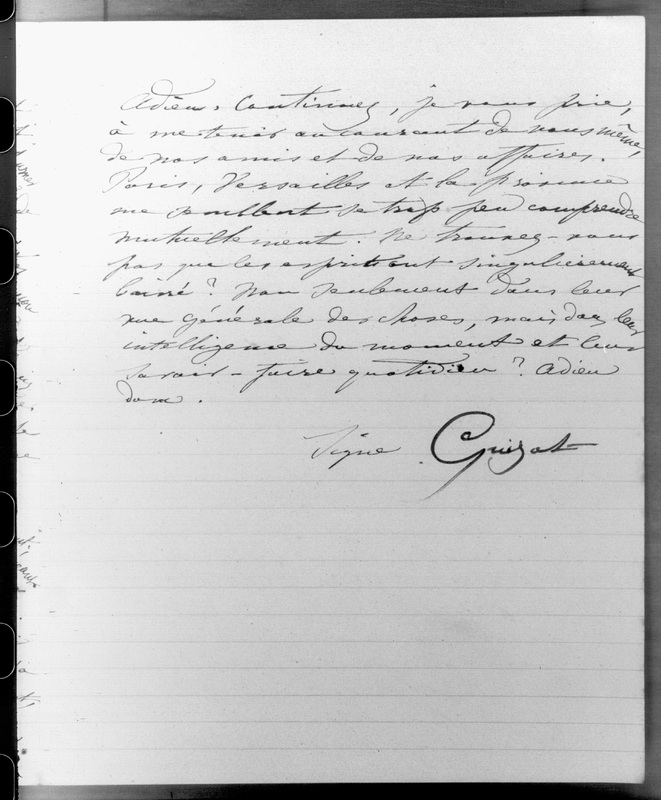 Adieu. Continuez, je vous prie,
à me tenir au courant de vous même,
de nos amis et de nos affaires.
Paris, Versailles et la province
me semblent se trop peu comprendre
mutuellement. Ne trouvez-vous
pas que les esprits ont singulièrement
baissé? Non seulement dans leur
vue générale des choses, mais dans leur
intelligence du moment et leur
savoir-faire quotidien? Adieu
donc.
Signé Guizot